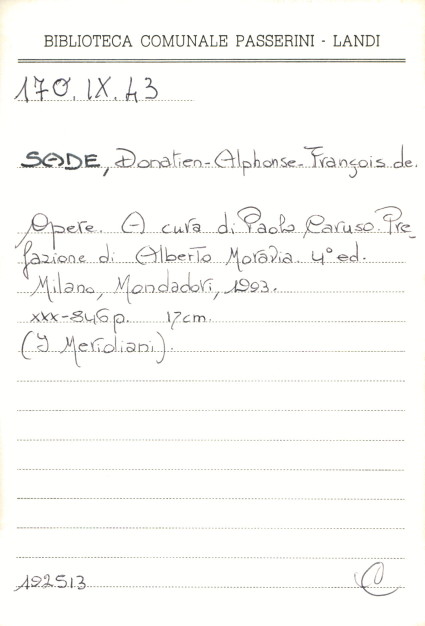 BIBLIOTECA COMUNALE PASSERINI - LANDI
170. IX. 43
SADE, Donatien-Alphonse-François de.
Opere. A cura di Paolo Caruso. Pre-
fazione di Alberto Moravia. 4° ed.
Milano, Mondadori, 1993.
XXX-846 p. 17 cm.
(I Meridiani).
192513